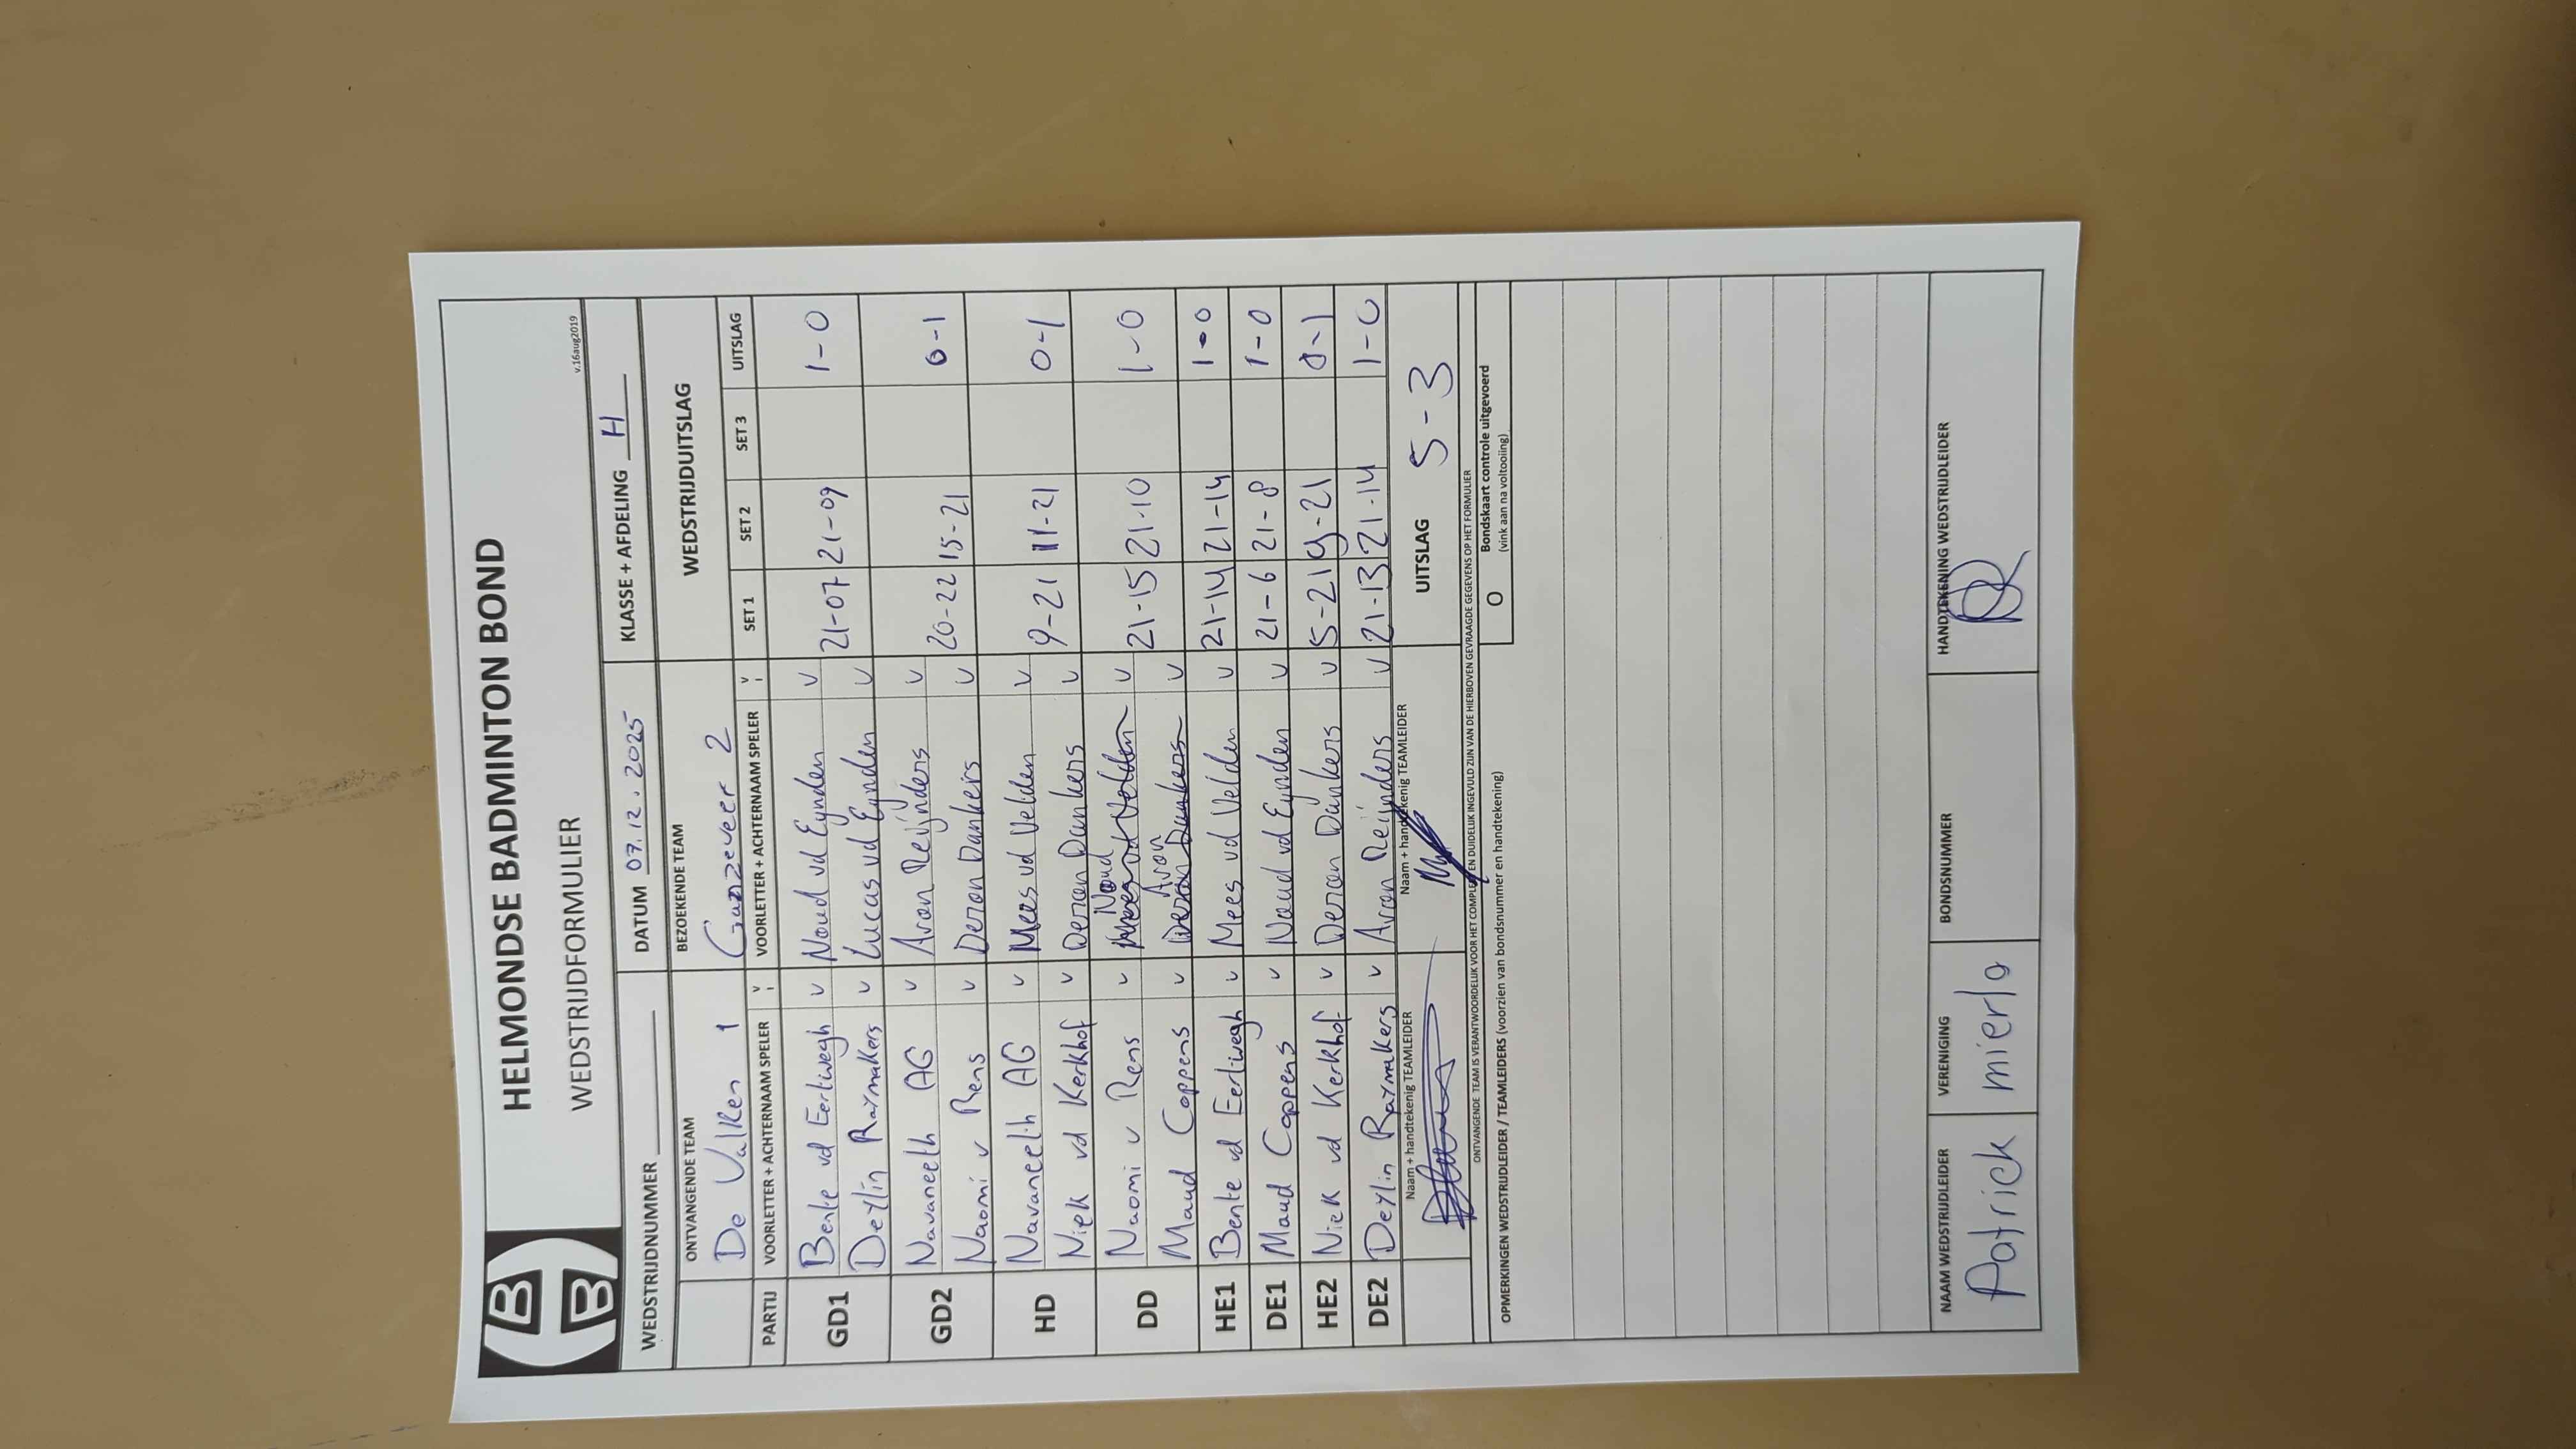 HELMONDSE BADMINTON BOND
WEDSTRIJDFORMULIER
v.16aug2019
WEDSTRIJDNUMMER DATUM 07.12.2025 KLASSE + AFDELING H
ONTVANGENDE TEAM BEZOEKENDE TEAM WEDSTRIJDUITSLAG
De Valken 1 Ganzeveer 2
PARTIJ VOORLETTER + ACHTERNAAM SPELER V VOORLETTER + ACHTERNAAM SPELER V SET 1 SET 2 SET 3 UITSLAG
GD1 Bente vd Eertwegh v Noud vd Eynden v 21-07 21-09 1-0
Deylin Raymakers v Lucas vd Eynden v
GD2 Navaneeth AG v Aron Reijnders v 20-22 15-21 0-1
Naomi v Rens v Deron Dankers v
HD Navaneeth AG v Mees vd Velden v 9-21 11-21 0-1
Niek vd Kerkhof v Deron Dankers v
DD Naomi v Rens v Noud v 21-15 21-10 1-0
Maud Coppens v Aron Deron Dankers v
HE1 Bente vd Eertwegh v Mees vd Velden v 21-14 21-14 1-0
DE1 Maud Coppens v Noud vd Eynden v 21-6 21-8 1-0
HE2 Niek vd Kerkhof v Deron Dankers v 5-21 9-21 0-1
DE2 Deylin Raymakers v Aron Reijnders v 21-13 21-14 1-0
Naam + handtekenig TEAMLEIDER Naam + handtekenig TEAMLEIDER UITSLAG 5-3
ONTVANGENDE TEAM IS VERANTWOORDELIJK VOOR HET COMPLEET EN DUIDELIJK INGEVULD ZIJN VAN DE HIERBOVEN GEVRAAGDE GEGEVENS OP HET FORMULIER
OPMERKINGEN WEDSTRIJDLEIDER / TEAMLEIDERS (voorzien van bondsnummer en handtekening) O Bondskaart controle uitgevoerd
(vink aan na voltooiing)
NAAM WEDSTRIJDLEIDER VERENIGING BONDSNUMMER HANDTEKENING WEDSTRIJDLEIDER
Patrick mierlo